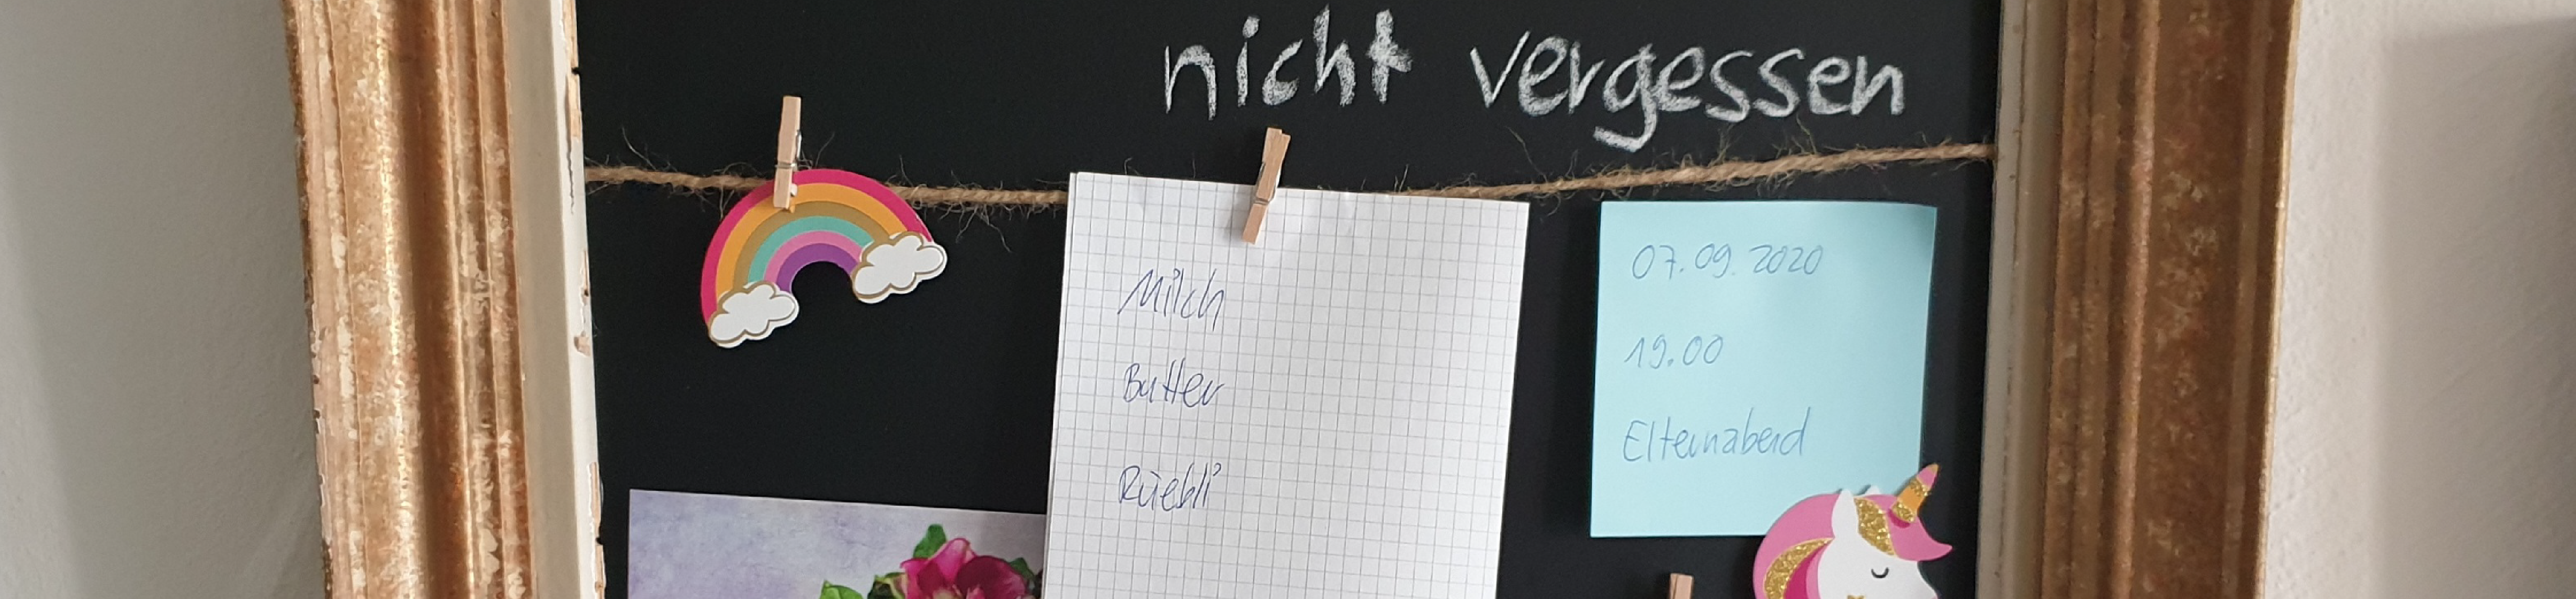 nicht vergessen
Milch
Butter
Rüebli
07.09.2020
19.00
Elternabend